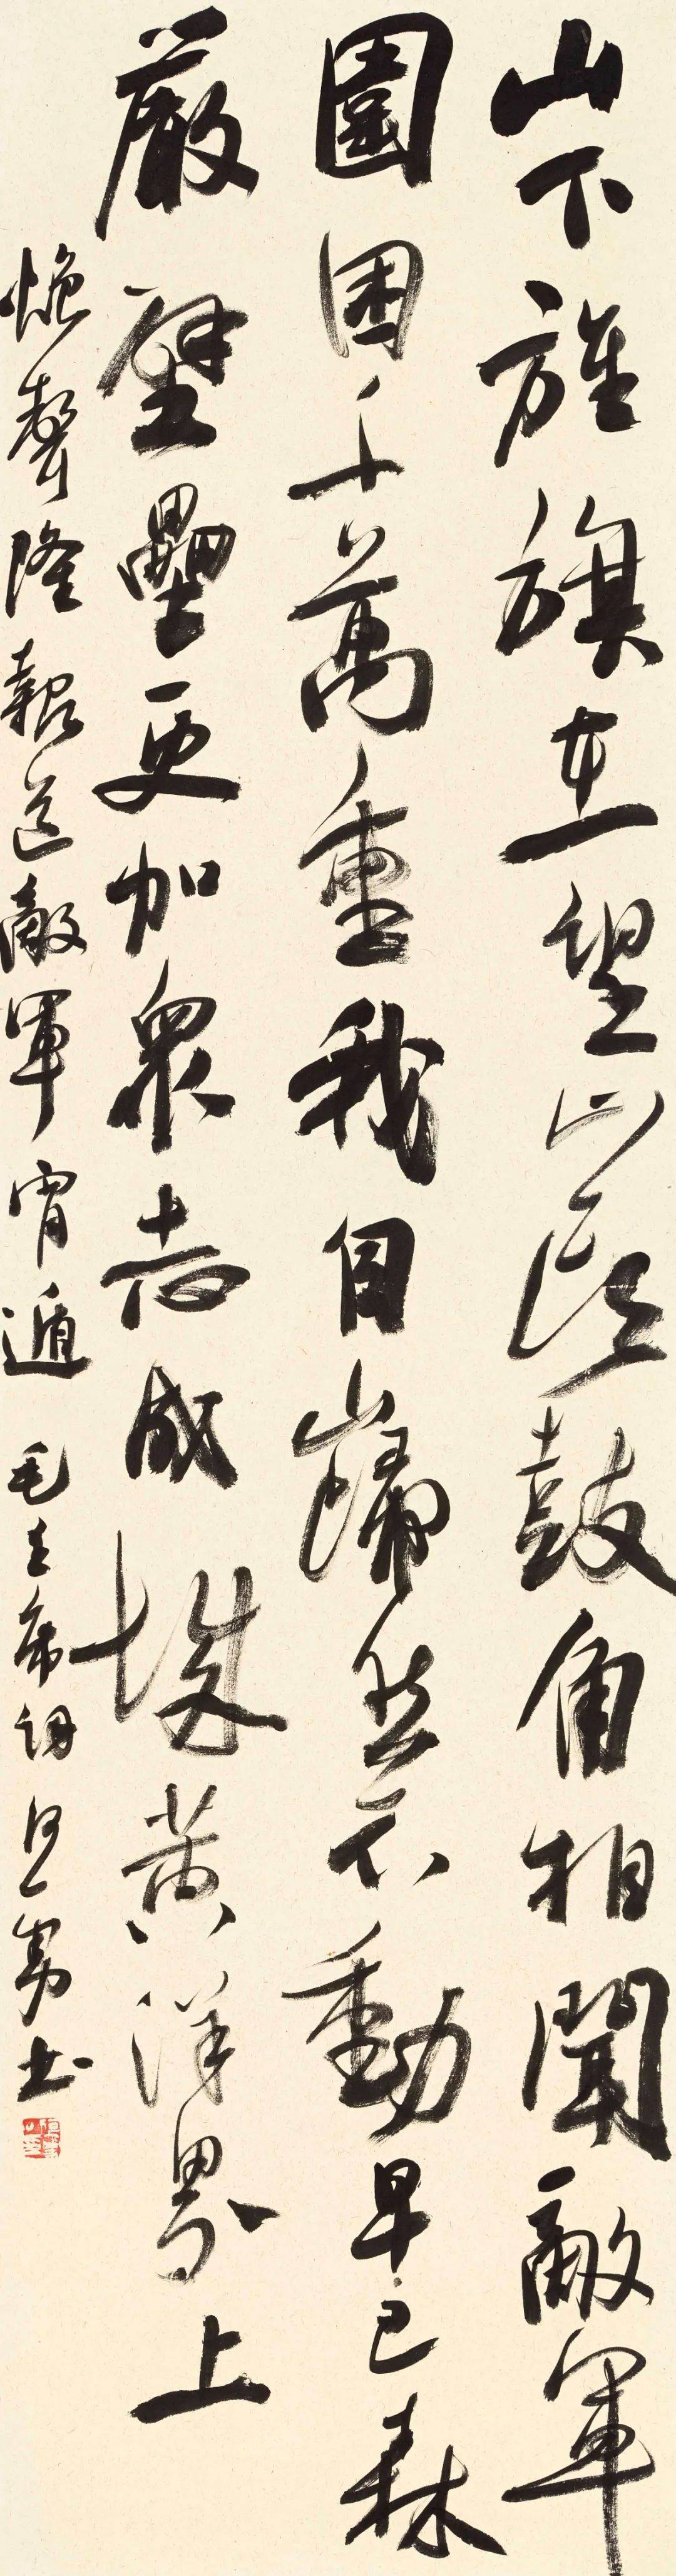 山下旌旗在望山頭鼓角相聞敵軍
圍困千萬重我自巋然不動早已森
嚴壁壘更加衆志成城黃洋界上
炮聲隆報道敵軍宵遁 毛主席詞 书